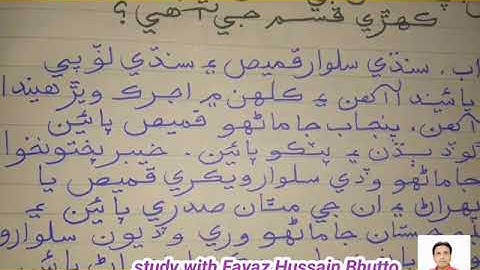 ڪهڙي قسم جي آهي؟
اب. سنڌي سلوار قميص ۽ سنڌي ٽوپي
پائيندا آهن ۽ ڪلهن ۾ اجرڪ ويڙهيندا
آهن. پنجاب جا ماڻهو قميص پائين
گوڏ ٻڌن ۽ پٽڪو پائين. خيبر پختونخوا
جا ماڻهو وڏي سلوار ويڪري قميص يا
پهراڻ ۽ ان جي مٿان صدري پائين ۽
بلوچستان جا ماڻهو وري وڏيون سلوارو
study with Fayaz Hussain Bhutto